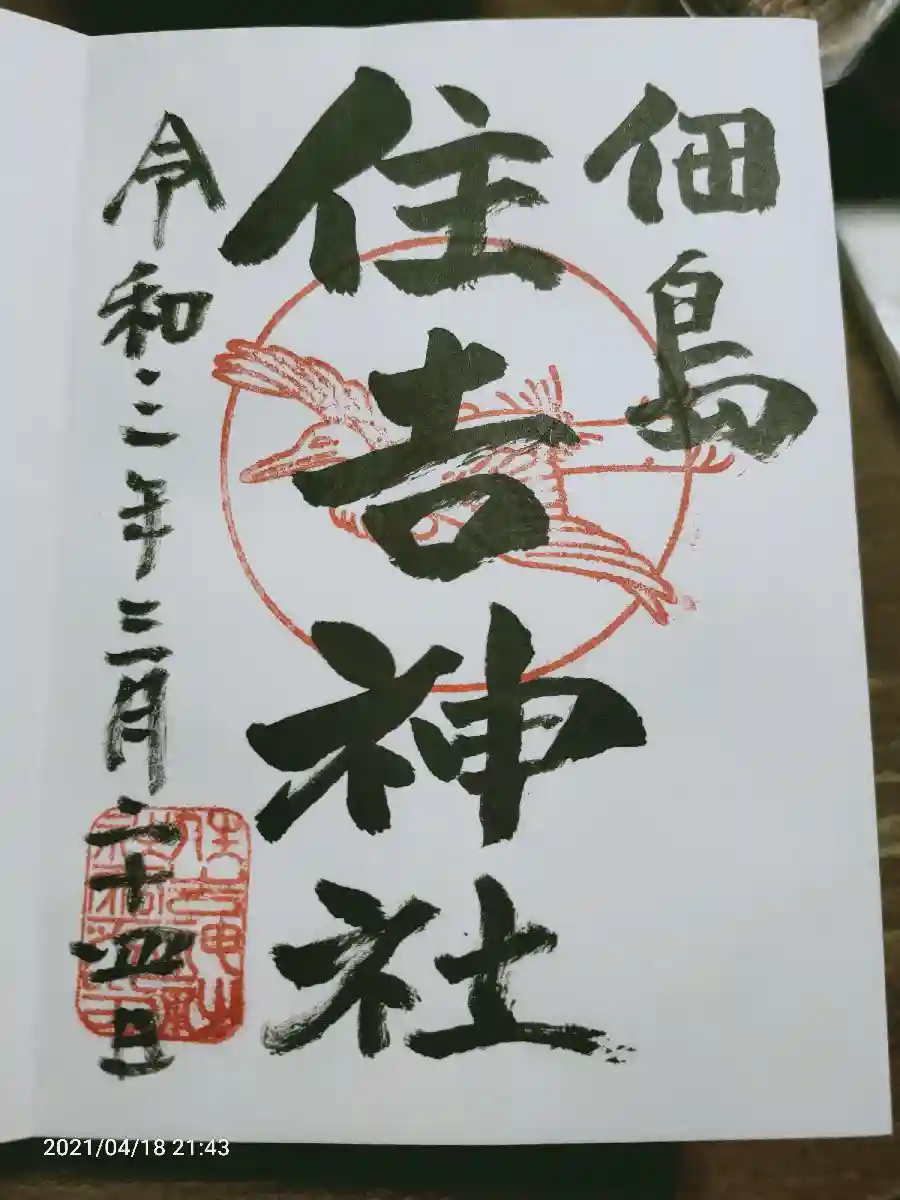 佃島
住吉神社
令和三年三月二十四日
住吉神社
2021/04/18 21:43